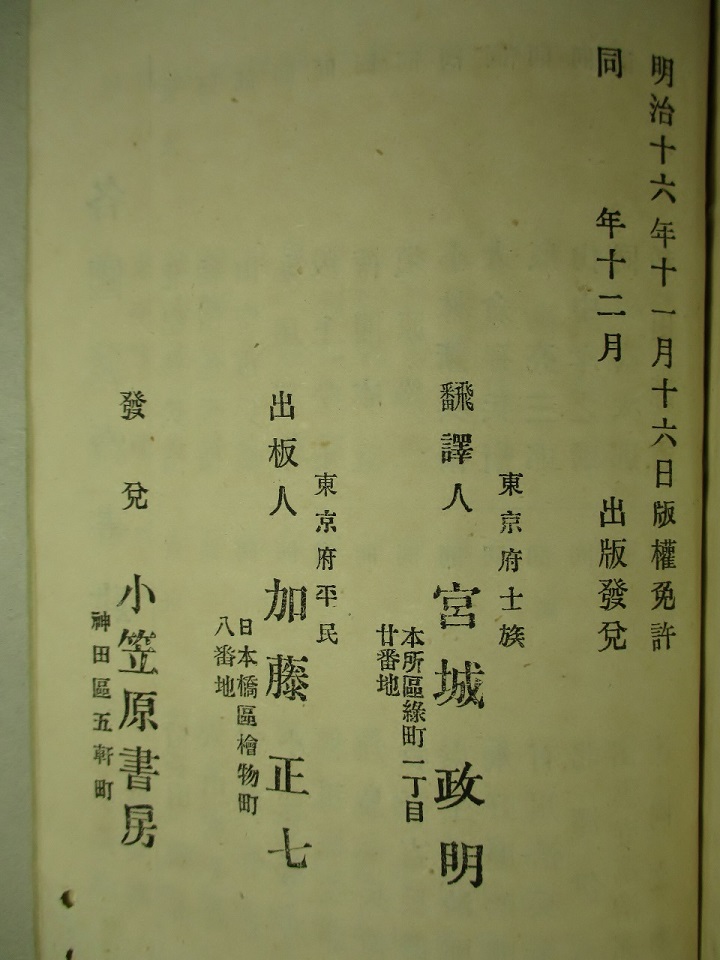 明治十六年十一月十六日版權免許
同年十二月出版發兌
東京府士族
飜譯人 宮城政明
本所區綠町一丁目
廿番地
東京府平民
出板人 加藤正七
日本橋區檜物町
八番地
發兌 小笠原書房
神田區五軒町